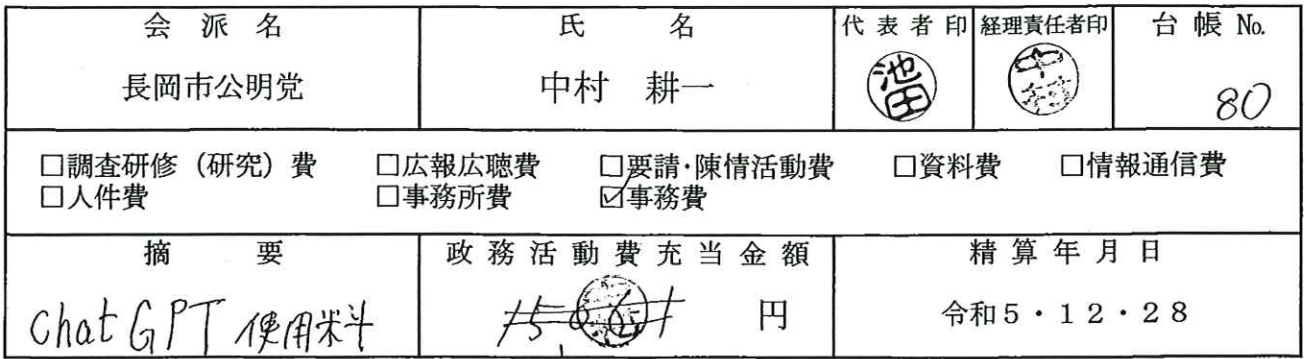 会派名 氏名 代表者印 経理責任者印 台帳 No.
長岡市公明党 中村 耕一 池田 中村 80
□調査研修(研究)費 □広報広聴費 □要請・陳情活動費 □資料費 □情報通信費
□人件費 □事務所費 ☑事務費
摘要 政務活動費充当金額 精算年月日
chatGPT使用料 円 令和5・12・28